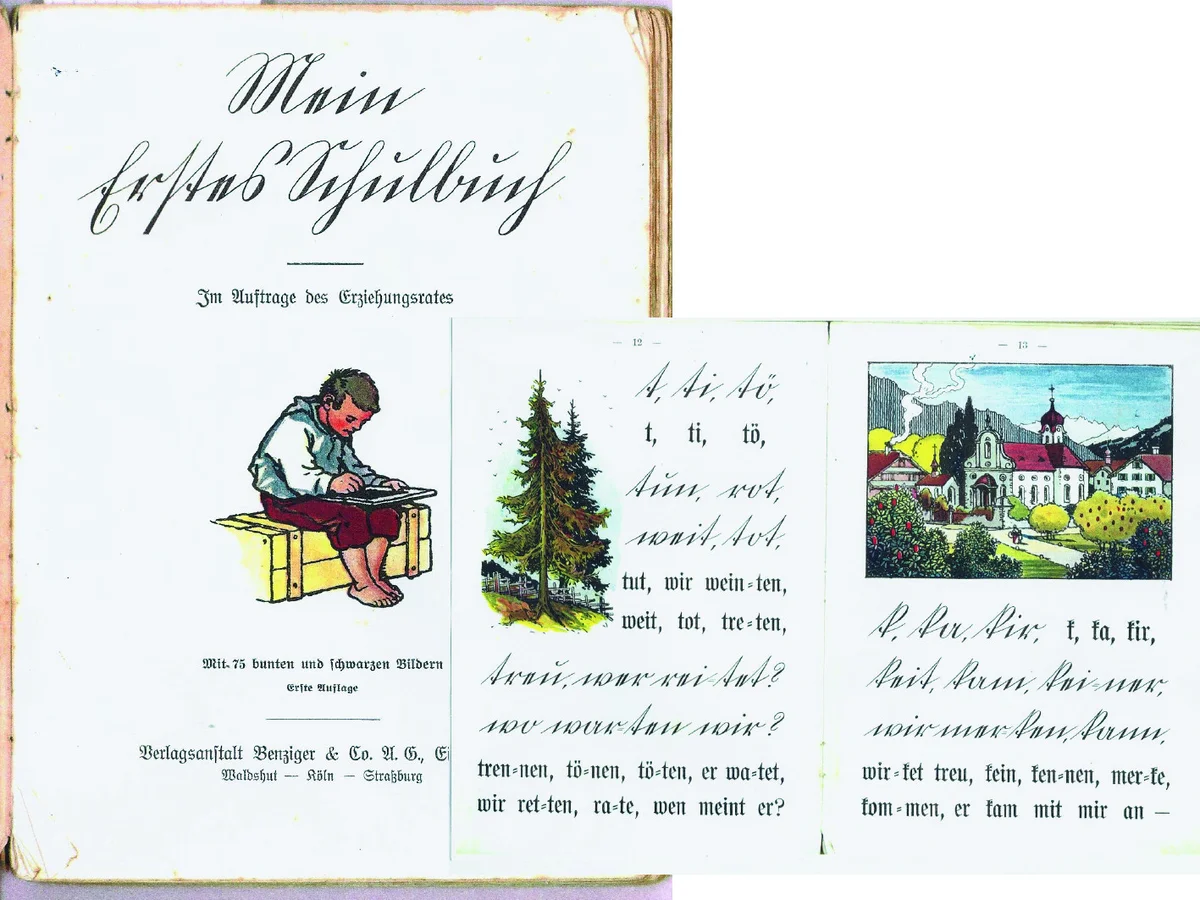 Mein
Erstes Schulbuch
Im Auftrage des Erziehungsrates
Mit 75 bunten und schwarzen Bildern
Erste Auflage
Verlagsanstalt Benziger & Co. A. G., Ei
Waldshut — Köln — Straßburg
— 12 —
t, ti, tö,
t, ti, tö,
tun, rot,
weit, tot,
tut, wir wein-ten,
weit, tot, tre-ten,
treu, wer rei-tet?
wo war-ten wir?
tren-nen, tö-nen, tö-ten, er wa-tet,
wir ret-ten, ra-te, wen meint er?
— 13 —
k, ka, kir, k, ka, kir,
keit, kam, kei-ner,
wir mer-ken, kann,
wir-ket treu, kein, ken-nen, mer-ke,
kom-men, er kam mit mir an —